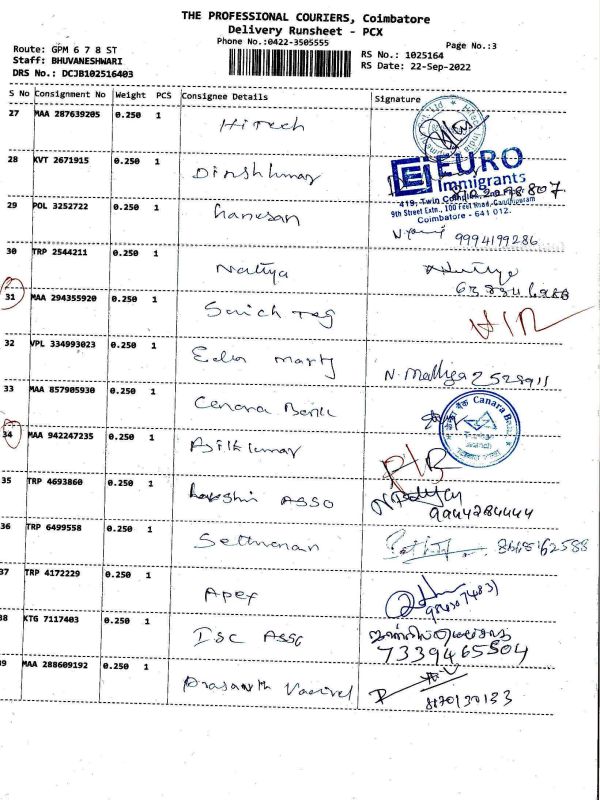 THE PROFESSIONAL COURIERS, Coimbatore
Delivery Runsheet - PCX
Phone No.:0422-3505555
Page No.:3
Route: GPM 6 7 8 ST
Staff: BHUVANESHWARI
DRS No.: DCJB102516403
RS No.: 1025164
RS Date: 22-Sep-2022
S No Consignment No Weight PCS Consignee Details Signature
27 MAA 287639205 0.250 1 HiTech
28 KVT 2671915 0.250 1 Dinshkumar
EURO
Immigrants
419, Twin Complex,
9th Street Extn., 100 Feet Road, Gandhipuram
Coimbatore - 641 012.
29 POL 3252722 0.250 1 Ganesan
9994199286
30 TRP 2544211 0.250 1 Nathya
31 MAA 294355920 0.250 1
32 VPL 334993023 0.250 1
N. Malliga 2528911
33 MAA 857905930 0.250 1 Canara Bank
Canara Bank
34 MAA 942247235 0.250 1 Ajilkumar
35 TRP 4693860 0.250 1 Lakshmi ASSO
9944284444
36 TRP 6499558 0.250 1 Sethuraman
8668162588
37 TRP 4172229 0.250 1 Apex
38 KTG 7117403 0.250 1 ISC ASSO
7339465504
39 MAA 288609192 0.250 1 Prasanth
8170130133